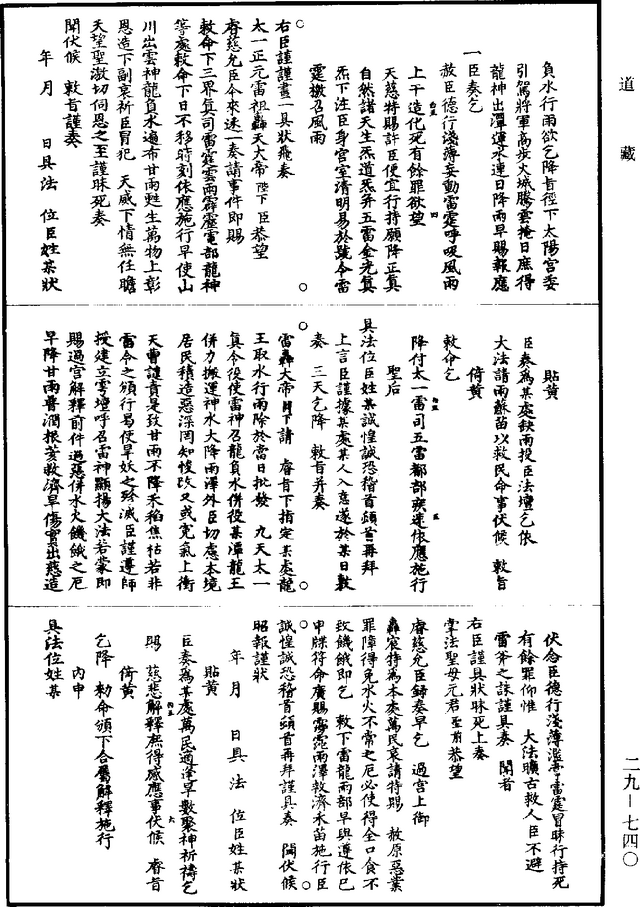 道藏
負水行雨欲乞降旨徑下太陽宮委
引駕將軍高步火城騰雲掩日庶得
龍神出潭運水連日降雨早賜報應
一臣奏乞
赦臣德行淺薄妄動雷霆呼吸風雨
上干造化死有餘罪欲望
天慈特賜許臣便宜行持願降正真
自然諸天生炁道炁并五雷金光真
炁下注臣身宮室清明易於號令雷
霆檄召風雨
右臣謹謹畫一具狀飛奏
太一正元雷祖轟天大帝陛下臣恭望
睿慈允臣今來逐一奏請事件即賜
敕命下三界真司雷霆雲雨霹靂電部龍神
等處敕命下日不移時刻依應施行早使山
川出雲神龍負水遍布甘雨甦生萬物上彰
恩造下副衆祈臣冒犯天威下情無任瞻
天望聖激切伺恩之至謹昧死奏
聞伏候敕旨謹奏
年月日具法位臣姓某狀
貼黃
臣奏為某處缺雨投臣法壇乞依
大法請雨蘇苗以救民命事伏候敕旨
倚黃
敕命乞
降付太一雷司五雷都部疾速依應施行
聖后
具法位臣姓某誠惶誠恐稽首頓首再拜
上言臣謹據某處某人入意遂於某日敷
奏三天乞降敕旨并奏
雷轟大帝陛下請睿旨下指定某處龍
王取水行雨除於當日批發九天太一
真令役使雷神召龍負水併役某潭龍王
併力搬運神水大降雨澤外臣切慮本境
居民積造惡深罔知悛改又或冤氣上衝
天曹譴責是致甘雨不降禾稻焦枯若非
雷令之頒行曷使旱妖之殄滅臣謹遵師
授建立雲壇呼召雷神顯揚大法若蒙即
賜過宮解釋前件過惡併水火饑餓之厄
早降甘雨普潤根荄救濟旱傷實出慈造
伏念臣德行淺薄濫叨雷霆冒昧行持死
有餘罪仰惟大法曠古救人臣不避
雷斧之誅謹具奏聞者
右臣謹具狀昧死上奏
掌法聖母元君聖前恭望
睿慈允臣錄奏早乞過宮上御
轟宸特為本處萬民哀請特賜赦原惡業
罪障得免水火不常之厄必使得全口食不
致饑餓即乞敕下雷龍雨部早與遵依已
申牒符命廣賜霶霈雨澤救濟禾苗施行臣
誠惶誠恐稽首頓首再拜謹具奏聞伏候
昭報謹狀
年月日具法位臣姓某狀
貼黃
臣奏為某處萬民適逢旱數聚神祈禱乞
賜慈悲解釋庶得感應事伏候睿旨
倚黃
乞降勅命頒下合屬解釋施行
內申
具法位姓某
二九—七四〇